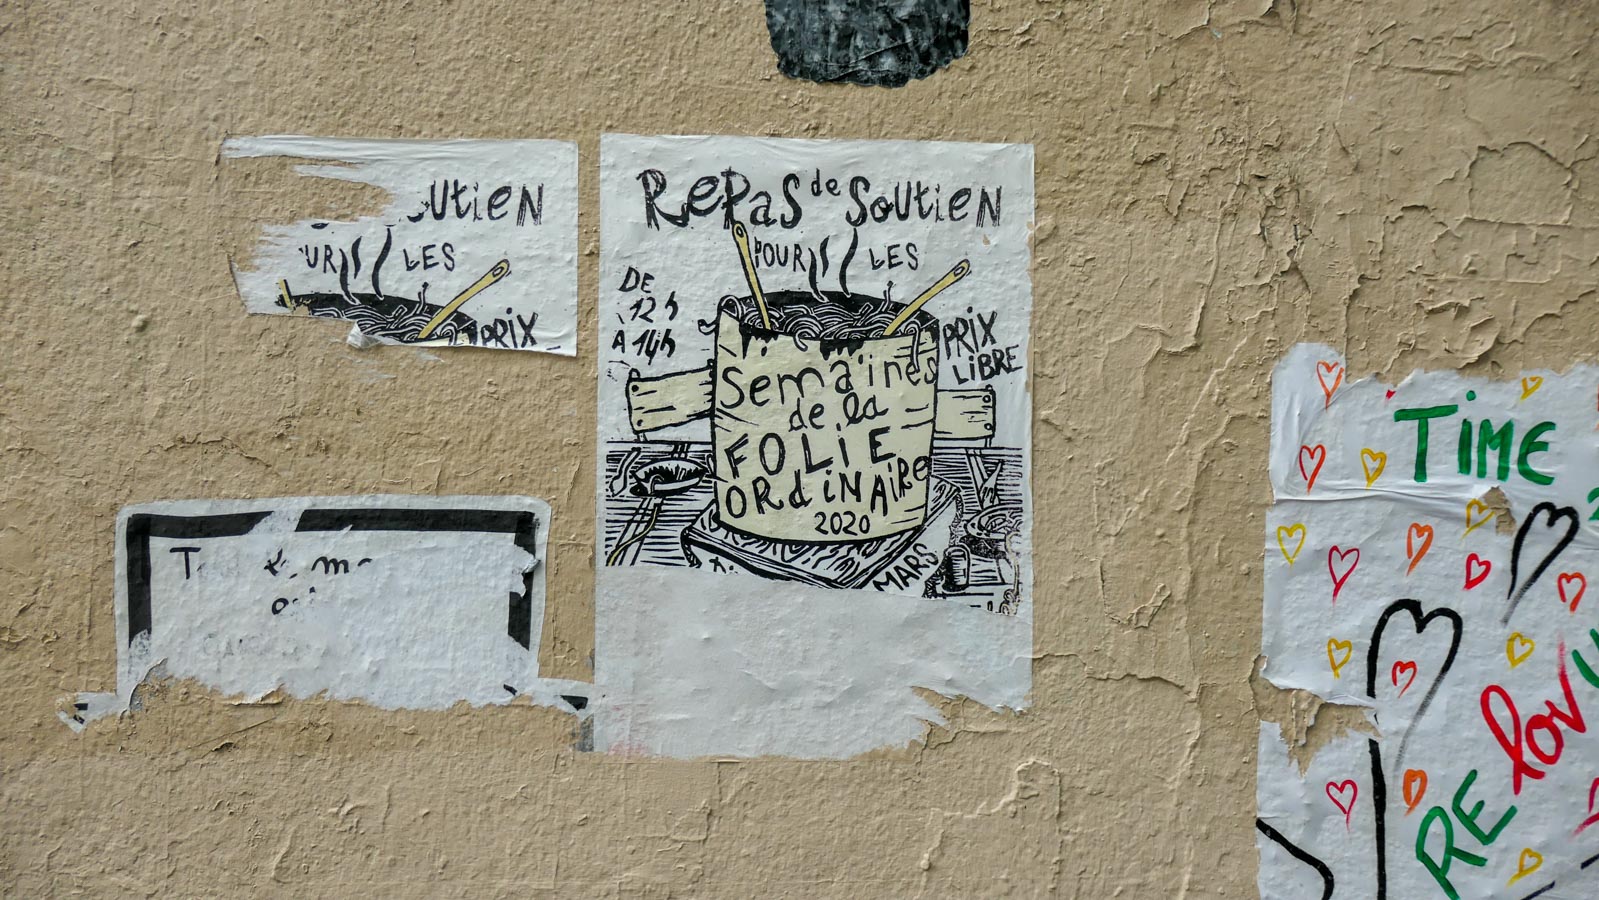 UTIEN
LES
PRIX
RePas de Soutien
POUR LES
DE
12h
A 14h
PRIX
LiBRE
Semaines
de la
FOLiE
ORdiNAiRe
2020
MARS
TiME
RE lov